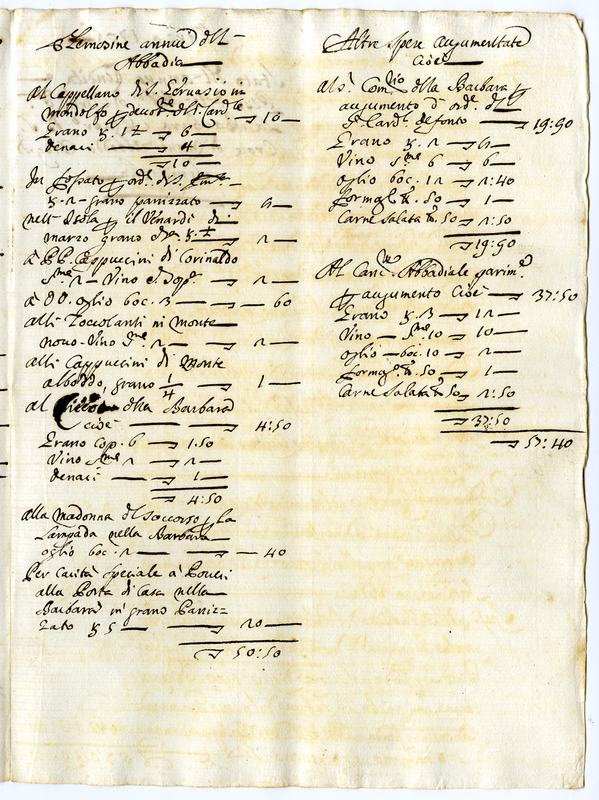 Elemosine annue dell'
Abbadia
Al Cappellano di S. Gervasio in
Mondolfo p decr.ne del S. Card.le 10
Grano 6
denaci 4
10
In Fossato p ord.e di S. Em.
grano panizzato 6
nell'Isola
marzo grano 2
a PP. Cappuccini di Corinaldo
S.me 2 Vino 2
a DD. oglio boc. 3 60
alli Zoccolanti in Monte
novo Vino S.me 2 2
alli Cappuccini di Monte
alboddo, grano 1/4 1
al della Barbara
cioè 4:50
Grano cop. 6 1.50
Vino S.me 2 2
denaci 1
4:50
alla Madonna del Soccorso p la
Lampada nella Barbara
oglio boc. 2 40
Per Carità speciale a Poveri
alla Porta di Casa nella
Barbara in grano Paniz=
zato 5 20
50:50
Altre spese augumentate
cioè
Al S. Com.rio della Barbara p
augumento d'ord.e del
S. Card.l defonto 19:90
Grano 6
Vino S.me 6 6
oglio boc. 12 2:40
formag. 50 1
Carne Salata 50 2:50
19:90
Al Abbadiale parim.e
p augumento cioè 37:50
Grano 3 12
Vino S.me 10 10
oglio boc. 10 2
formag. 50 1
Carne Salata 50 2:50
37:50
57:40